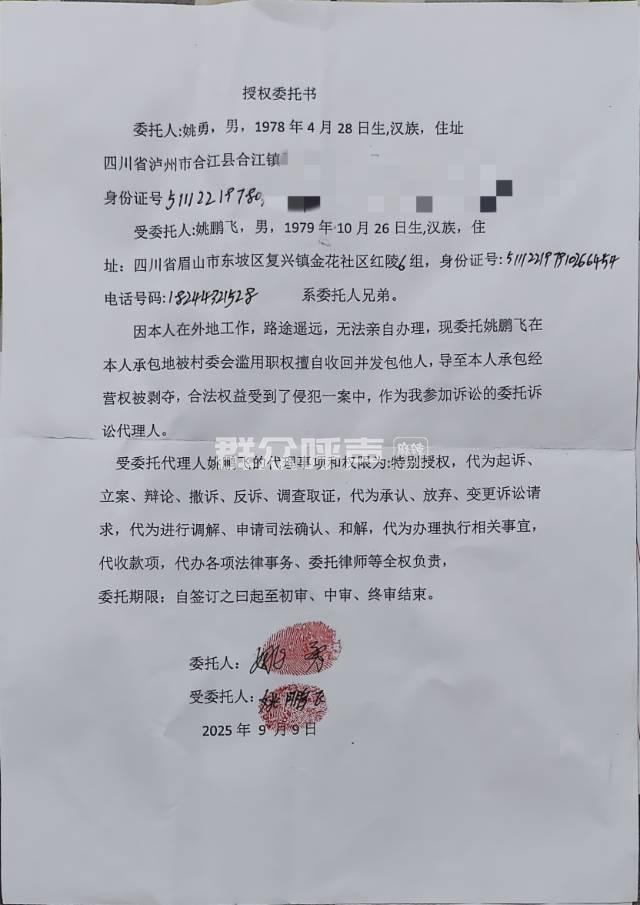 授权委托书
委托人:姚勇，男，1978年4月28日生,汉族，住址
四川省泸州市合江县合江镇
身份证号5111221978
受委托人:姚鹏飞，男，1979年10月26日生,汉族，住
址：四川省眉山市东坡区复兴镇金花社区红陵6组，身份证号:511122197910266454
电话号码:18244321528 系委托人兄弟。
因本人在外地工作，路途遥远，无法亲自办理，现委托姚鹏飞在
本人承包地被村委会滥用职权擅自收回并发包他人，导至本人承包经
营权被剥夺，合法权益受到了侵犯一案中，作为我参加诉讼的委托诉
讼代理人。
群众呼声 麻辣
受委托代理人姚鹏飞的代理事项和权限为:特别授权，代为起诉、
立案、辩论、撒诉、反诉、调查取证，代为承认、放弃、变更诉讼请
求，代为进行调解、申请司法确认、和解，代为办理执行相关事宜，
代收款项，代办各项法律事务、委托律师等全权负责，
委托期限：自签订之曰起至初审、中审、终审结束。
委托人：姚勇
受委托人：姚鹏飞
2025年 9月9日